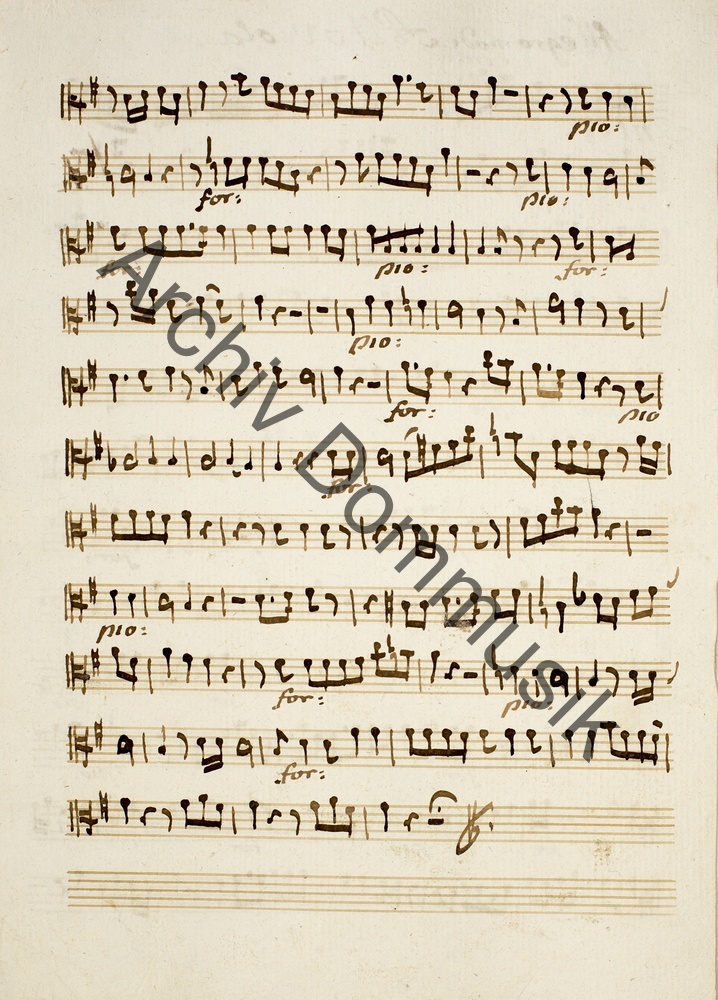 pio:
for: pio:
for: pio: for:
pio:
for: pio
for:
pio:
for: pio:
for:
Archiv Dommusik